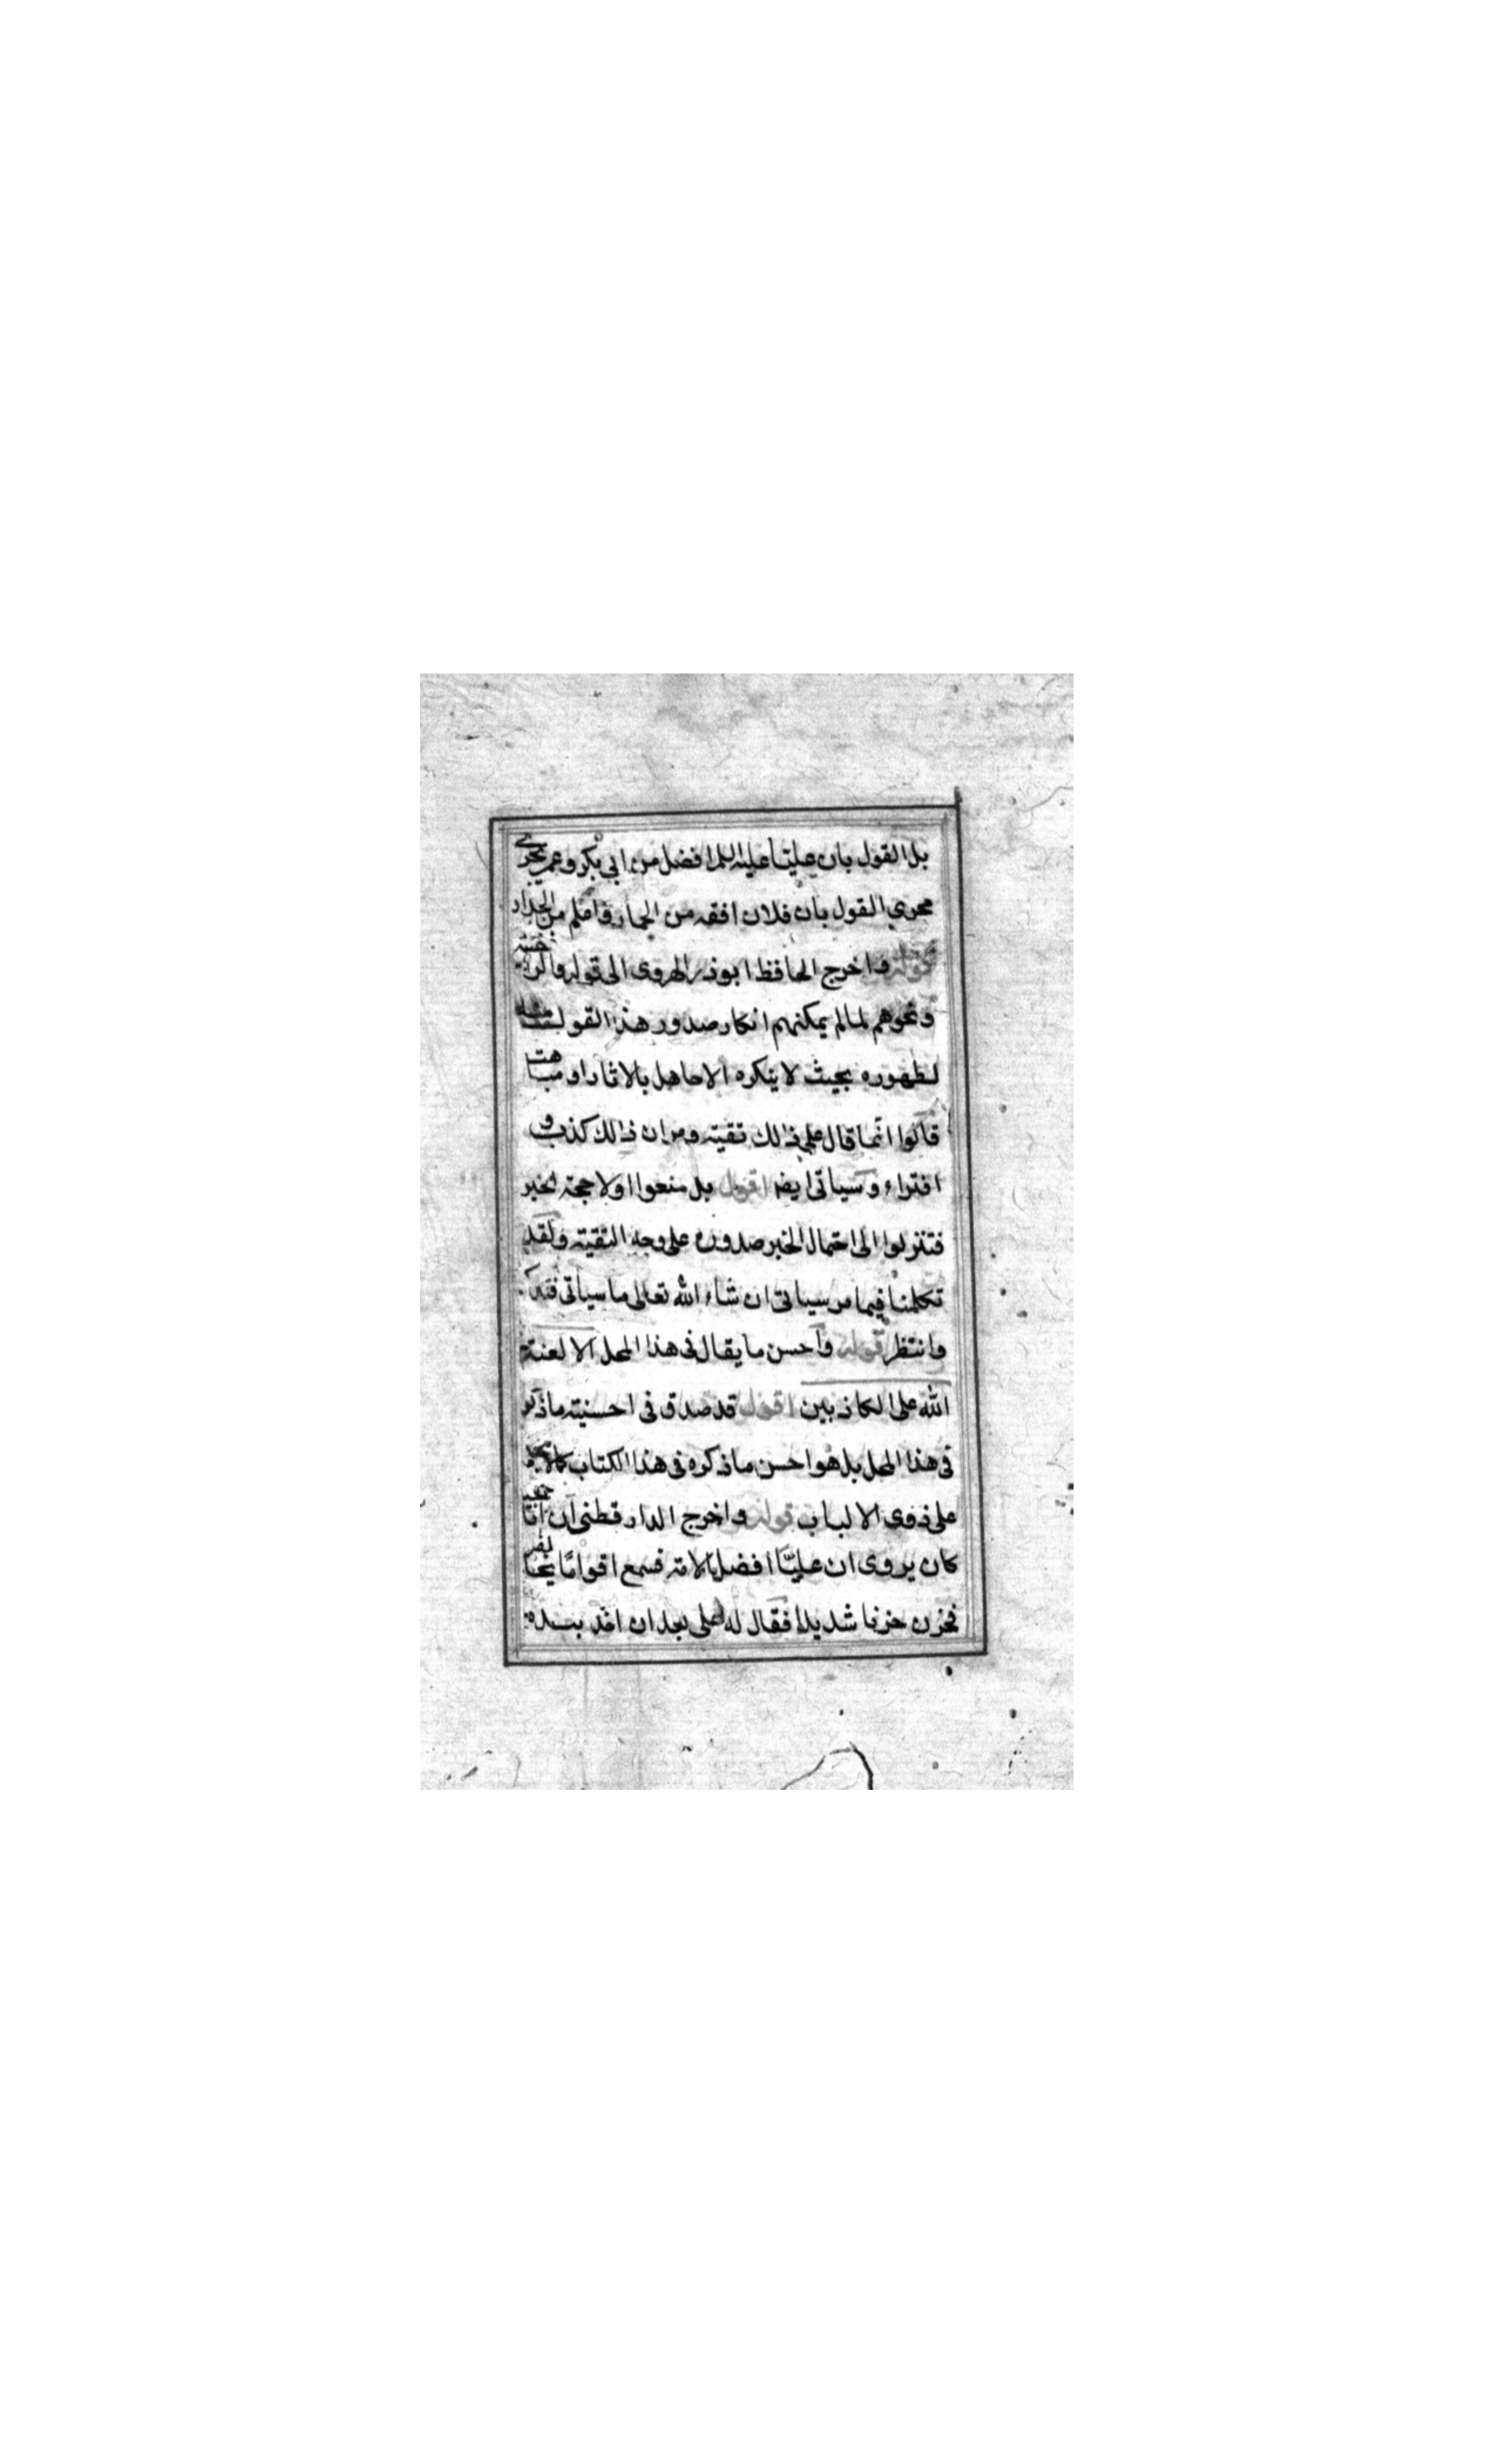 بل القول بان عليّا عليه السلم افضل من ابي بكر وعمر يجرى
مجرى القول بان فلان افقه من الحمار واعلم من الجدار
قوله واخرج الحافظ ابوذر الهروى الى قوله والرافضة
ونحوهم لما لم يمكنهم انكار صدور هذا القول منه
لظهوره بحيث لا ينكره الا جاهل بالاثار او مباهت
قالوا انّما قال علي ذلك تقية ومر ان ذلك كذب و
افتراء وسياتى ايضا اقول بل منعوا اولا حجة الخبر
فتنزلوا الى احتمال الخبر صدوره على وجه التقية ولقد
تكلمنا فيما مر سياتى ان شاء الله تعالى ما سياتى فتذكر
وانتظر قوله واحسن ما يقال فى هذا المحل الا لعنة
الله على الكاذبين اقول قد صدق فى احسنية ما ذكر
فى هذا المحل بل هو احسن ما ذكره فى هذا الكتاب كما لا يخفى
على ذوى الالباب قوله واخرج الدار قطنى ان ابا جحيفة
كان يروى ان عليّا افضل الامة فسمع اقواما يخالفونه
فحزن حزنا شديدا فقال له على بعد ان اخذ بيده